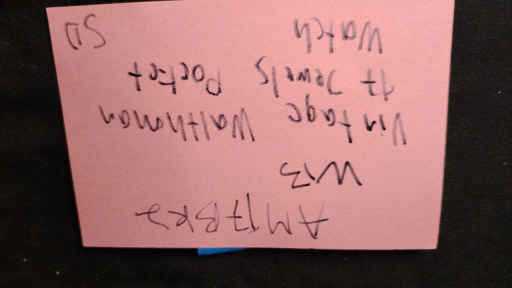 AM17BK2
W13
Vintage Walthman
17 Jewels Pocket
Watch SD